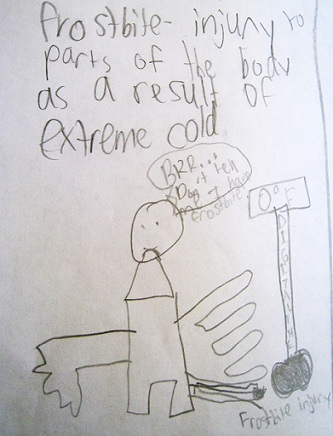 frostbite- injury to
parts of the body
as a result of
extreme cold
BRR...
Don't tell
me I have
frostbite
0°F
Frostbite injury